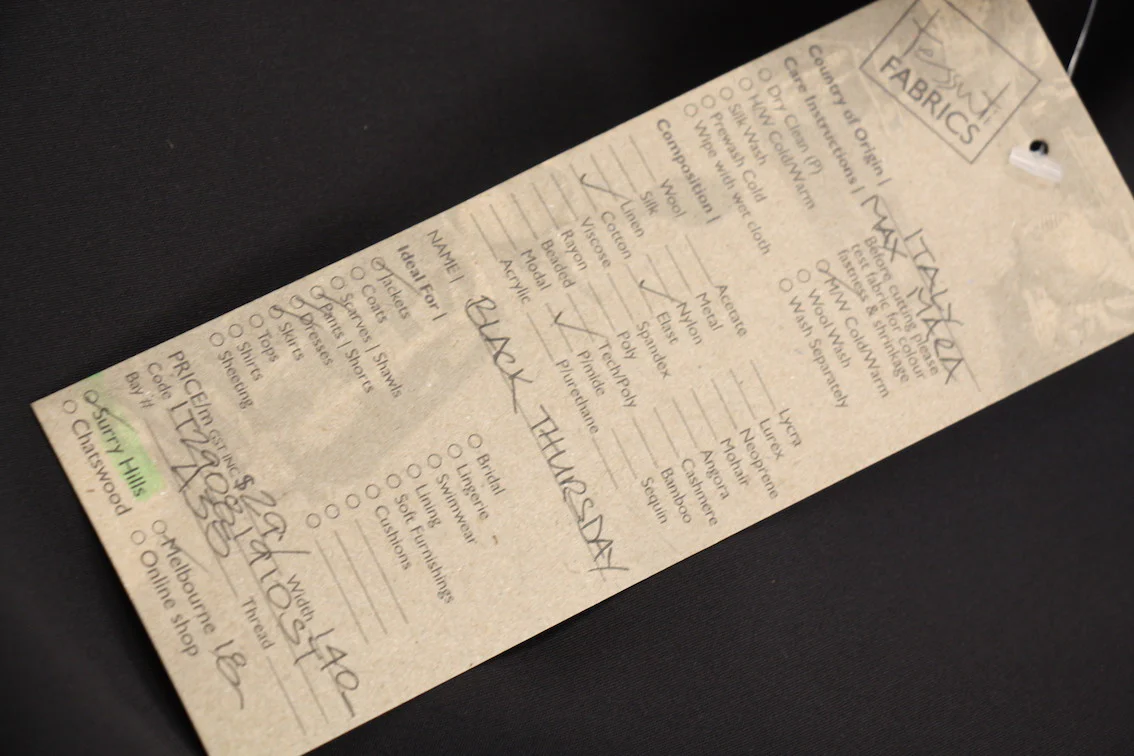 tessuti
FABRICS
Country of Origin | ITALY
Care Instructions | MAX MARA
Dry Clean (P)
H/W Cold/Warm
Silk Wash
Prewash Cold
Wipe with wet cloth
Before cutting please
test fabric for colour
fastness & shrinkage
M/W Cold/Warm
Wool Wash
Wash Separately
Composition |
Wool
Silk
Linen
Cotton
Viscose
Rayon
Beaded
Modal
Acrylic
Acetate
Metal
Nylon
Elast
Spandex
Poly
Tech/Poly
P/mide
P/urethane
Lycra
Lurex
Neoprene
Mohair
Angora
Cashmere
Bamboo
Sequin
NAME | BLACK THURSDAY
Ideal For |
Jackets
Coats
Scarves | Shawls
Pants | Shorts
Dresses
Skirts
Tops
Shirts
Sheeting
Bridal
Lingerie
Swimwear
Lining
Soft Furnishings
Cushions
PRICE/m GST INC $29/ Width 140
Code
Thread
Bay #
Surry Hills
Chatswood
Melbourne 18
Online shop